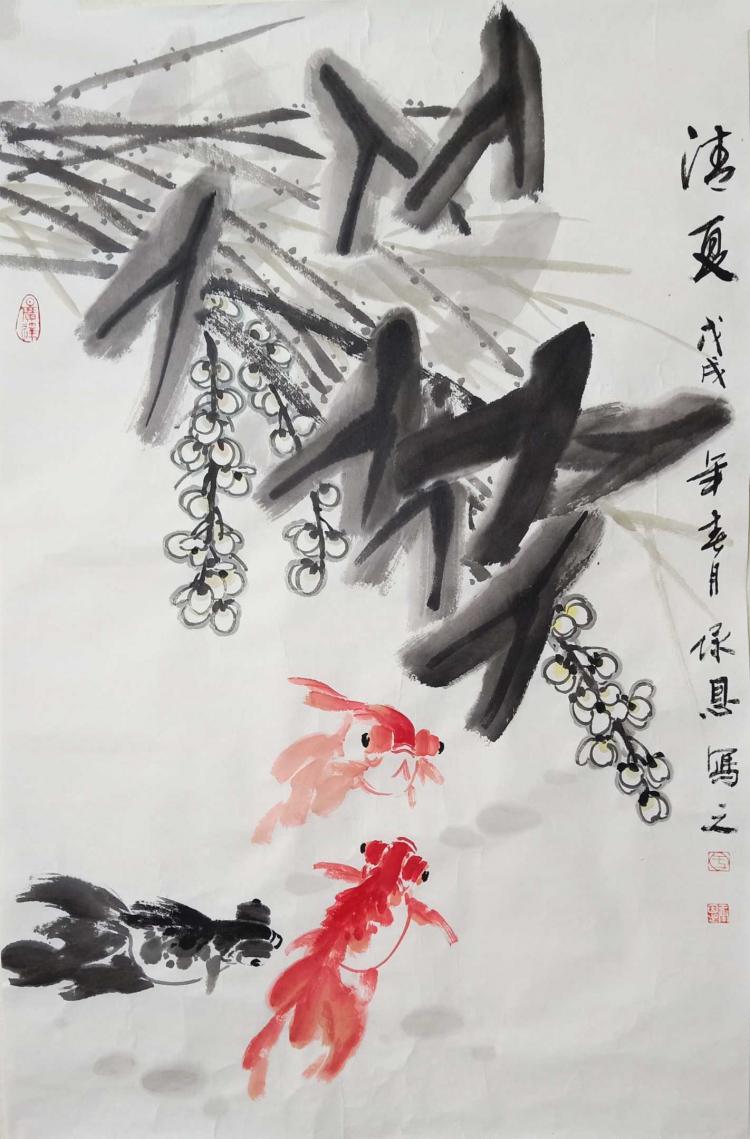 清夏 戊戌年春月保恩写之